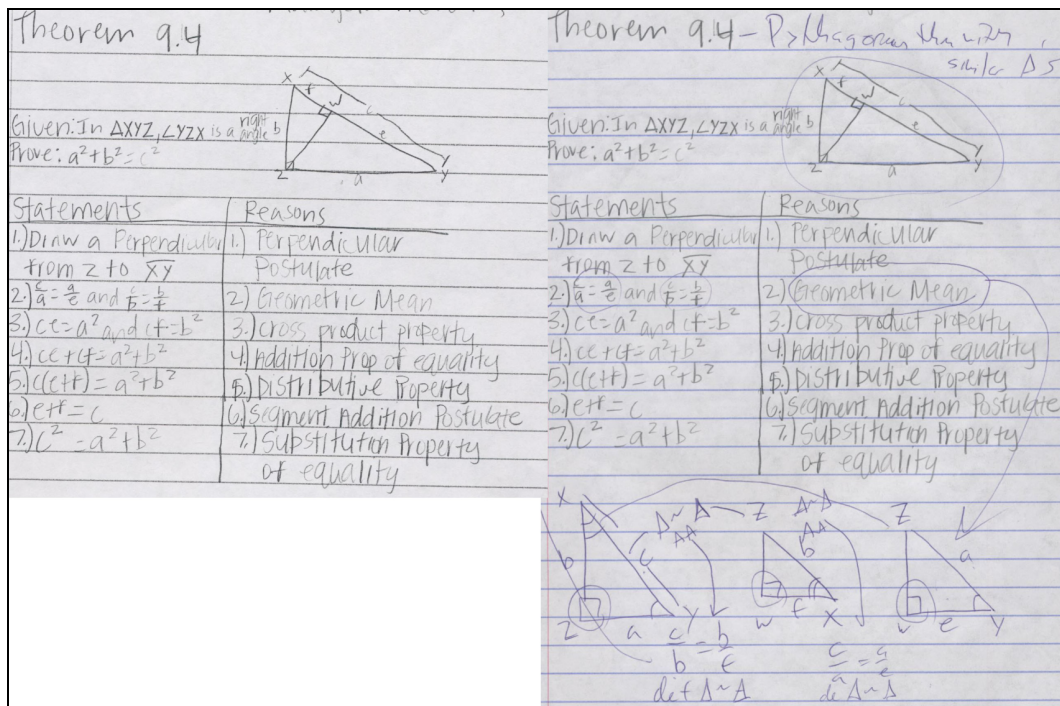 Theorem 9.4
X
f
W
c
Given: In ΔXYZ, ∠YZX is a right angle
b
e
Prove: a²+b²=c²
Z
a
Y
Statements | Reasons
1.) Draw a Perpendicular | 1.) Perpendicular
from Z to XY | Postulate
2.) c/a = a/e and c/b = b/f | 2.) Geometric Mean
3.) ce=a² and cf=b² | 3.) cross product property
4.) ce+cf=a²+b² | 4.) Addition Prop of equality
5.) c(e+f)=a²+b² | 5.) Distributive Property
6.) e+f=c | 6.) Segment Addition Postulate
7.) c²=a²+b² | 7.) Substitution Property
of equality
Theorem 9.4 - Pythagorean thm using
similar Δs
X
f
W
c
Given: In ΔXYZ, ∠YZX is a right angle
b
e
Prove: a²+b²=c²
Z
a
Y
Statements | Reasons
1.) Draw a Perpendicular | 1.) Perpendicular
from Z to XY | Postulate
2.) c/a = a/e and c/b = b/f | 2) Geometric Mean
3.) ce=a² and cf=b² | 3.) cross product property
4.) ce+cf=a²+b² | 4.) Addition Prop of equality
5.) c(e+f)=a²+b² | 5.) Distributive Property
6.) e+f=c | 6.) Segment Addition Postulate
7.) c²=a²+b² | 7.) Substitution Property
of equality
X Δ~Δ Z Δ~Δ Z
AA AA
b c b a
Z a Y W f X W e Y
c/b = b/f c/a = a/e
def Δ~Δ def Δ~Δ